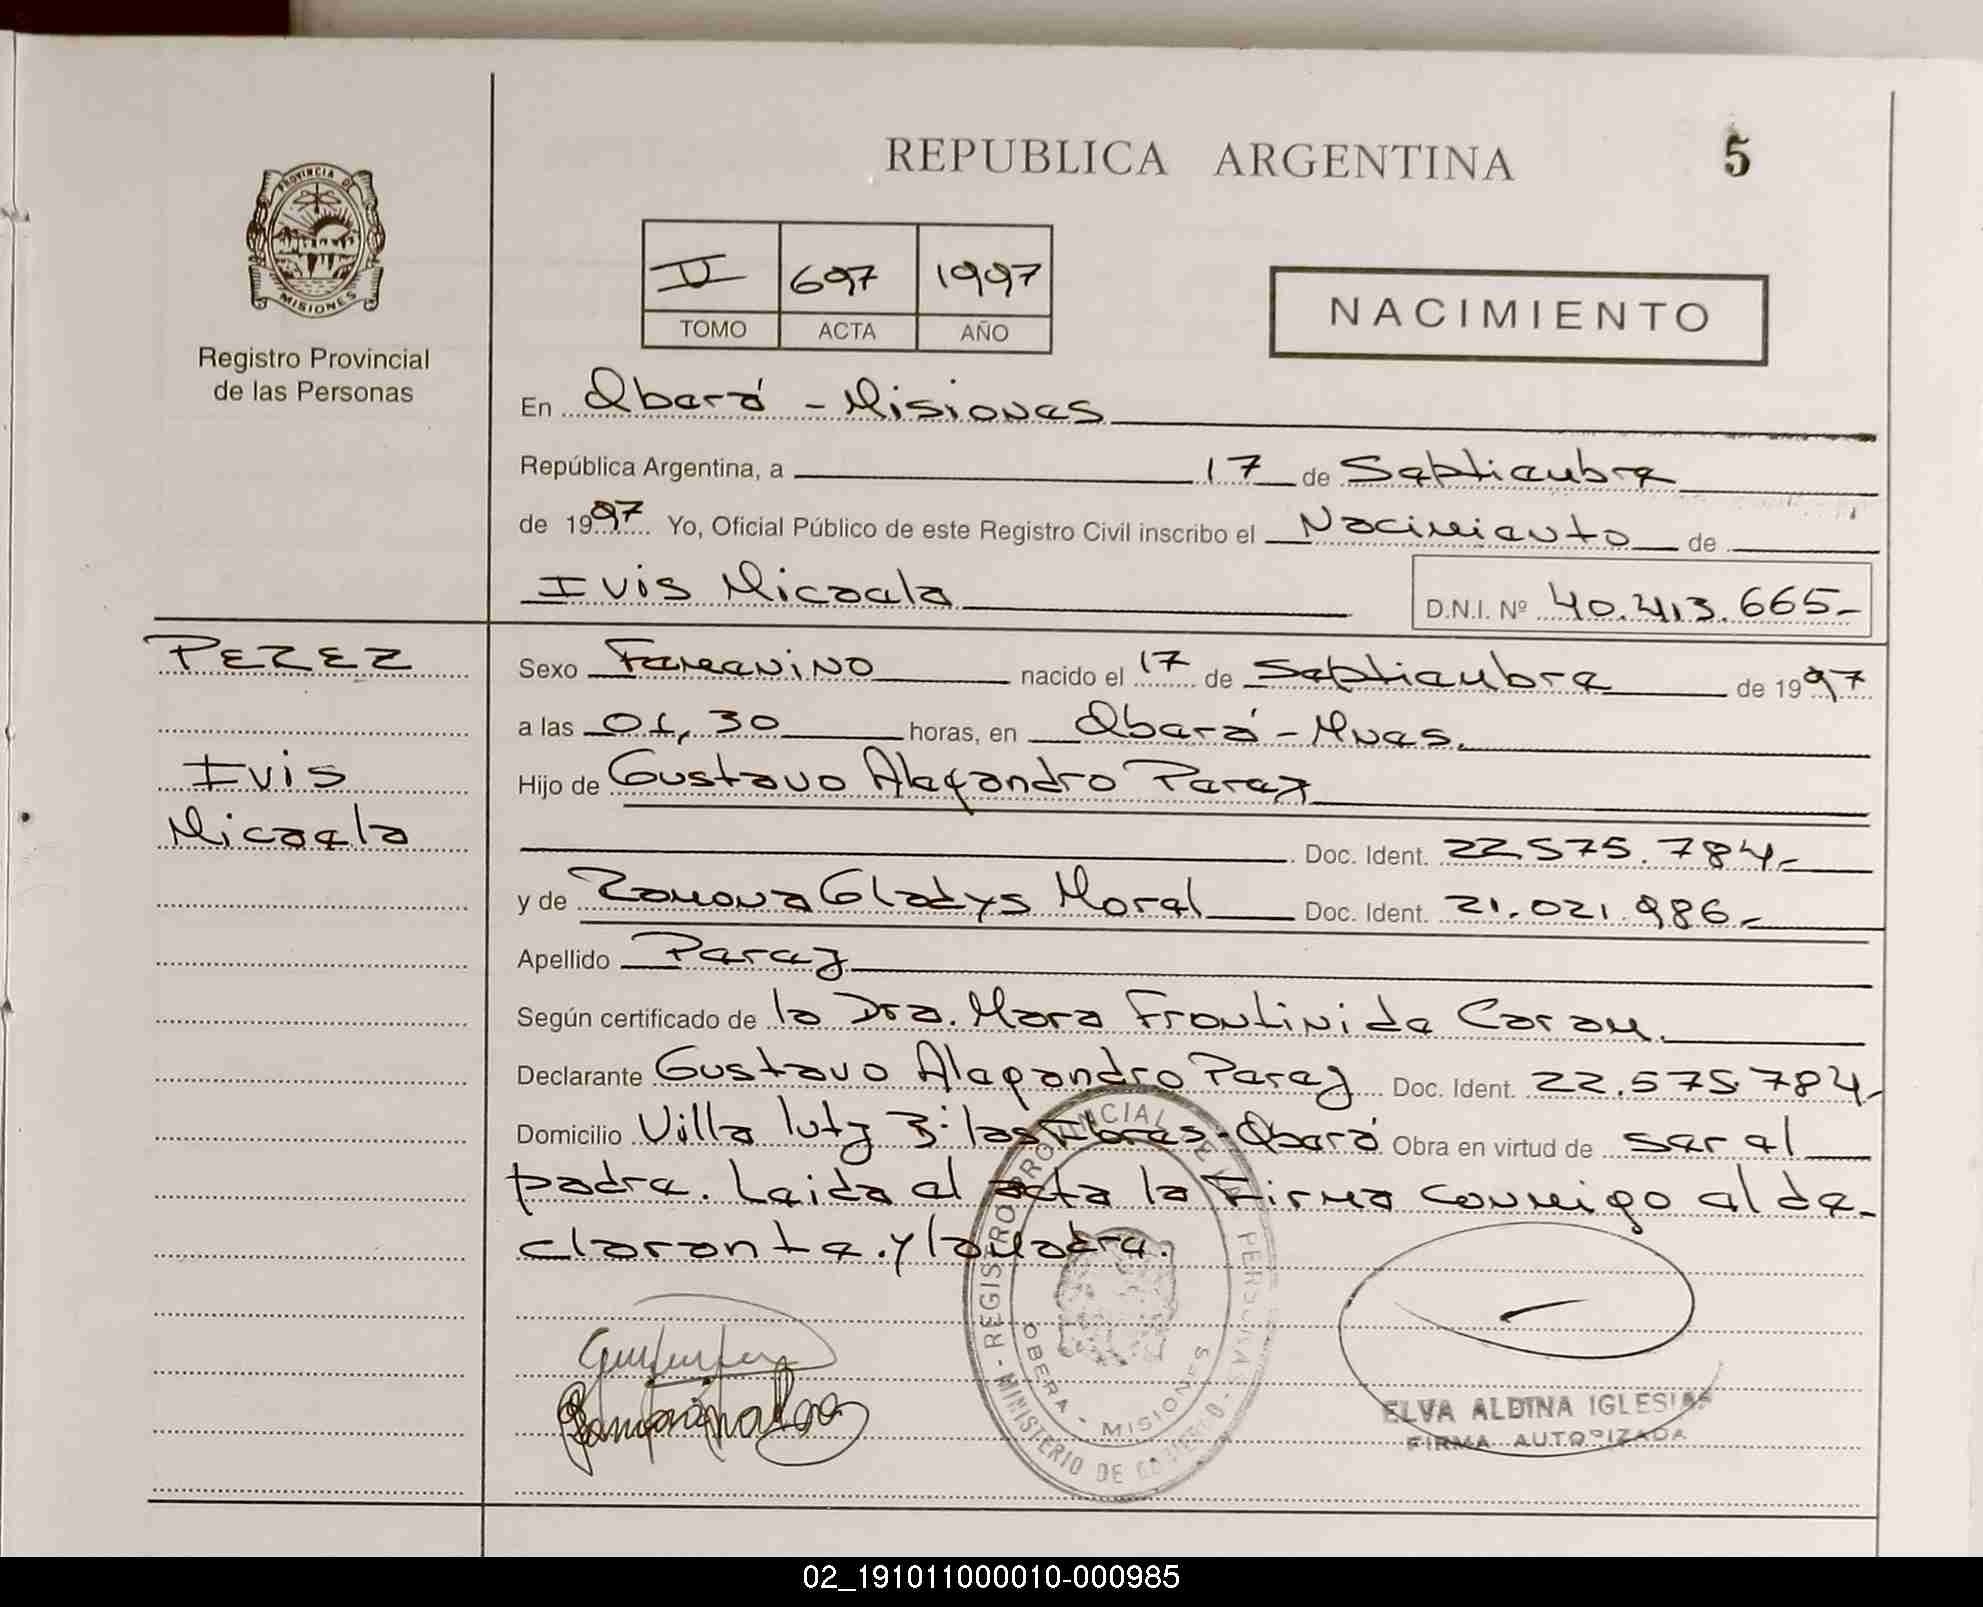 REPUBLICA ARGENTINA
5
PROVINCIA DE
MISIONES
Registro Provincial
de las Personas
II 697 1997
TOMO ACTA AÑO
NACIMIENTO
En Oberá - Misiones
República Argentina, a 17 de Septiembre
de 1997 Yo, Oficial Público de este Registro Civil inscribo el Nacimiento de
Ivis Micaela D.N.I. Nº 40.413.665-
PEREZ
Ivis
Micaela
Sexo Femenino nacido el 17 de Septiembre de 1997
a las 01,30 horas, en Oberá - Mnes.
Hijo de Gustavo Alejandro Perez
Doc. Ident. 22.575.784.-
y de Ramona Gladys Morel Doc. Ident. 21.021.986.-
Apellido Perez
Según certificado de la Dra. Mara Caram.
Declarante Gustavo Alejandro Perez Doc. Ident. 22.575.784.-
Domicilio Villa Lutz B: las Flores - Oberá Obra en virtud de ser el
padre. Leida el acta la firma conmigo el de-
clarante. y la madre.
REGISTRO PROVINCIAL DE LAS PERSONAS
OBERA - MISIONES
- MINISTERIO DE GOBIERNO -
ELVA ALDINA IGLESIAS
FIRMA AUTORIZADA
02_191011000010-000985